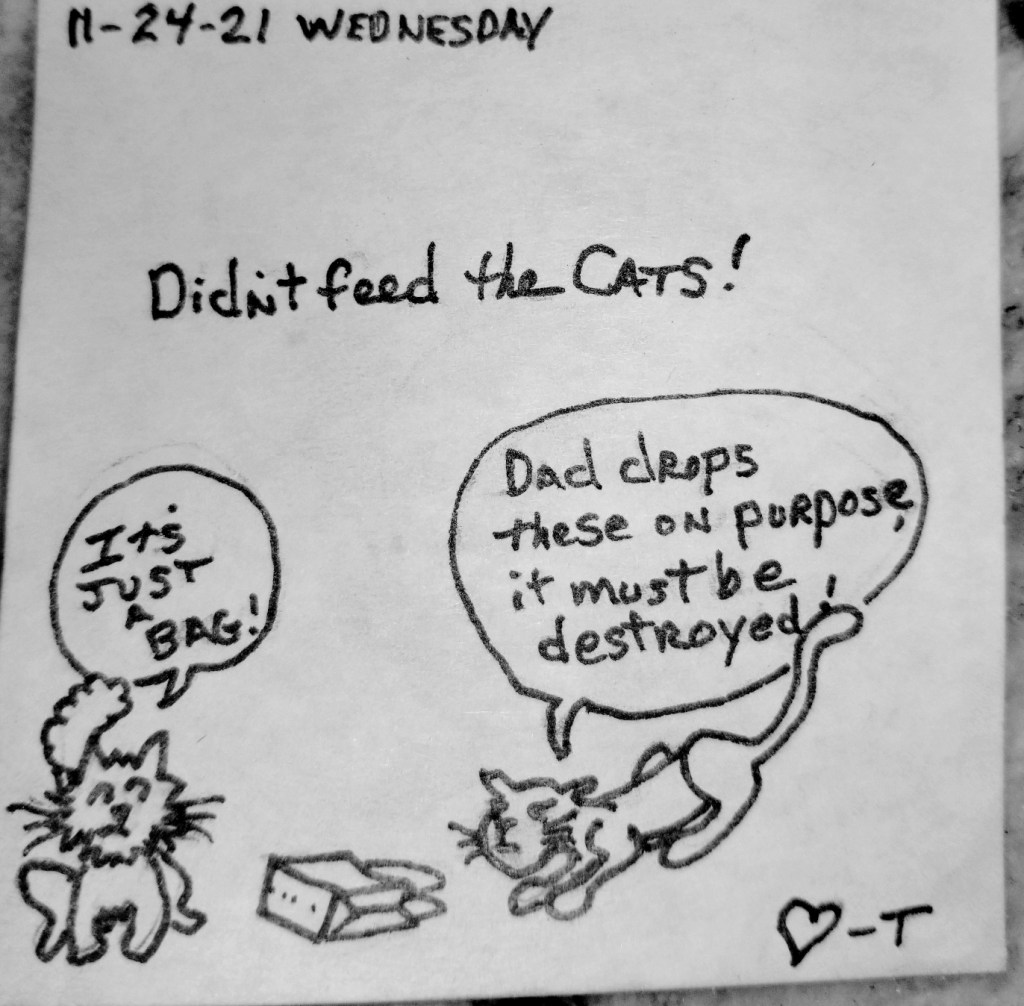 11-24-21 WEDNESDAY
Didn't feed the CATS!
It's
JUST
A
BAG!
Dad drops
these on purpose,
it must be
destroyed!
♡-T